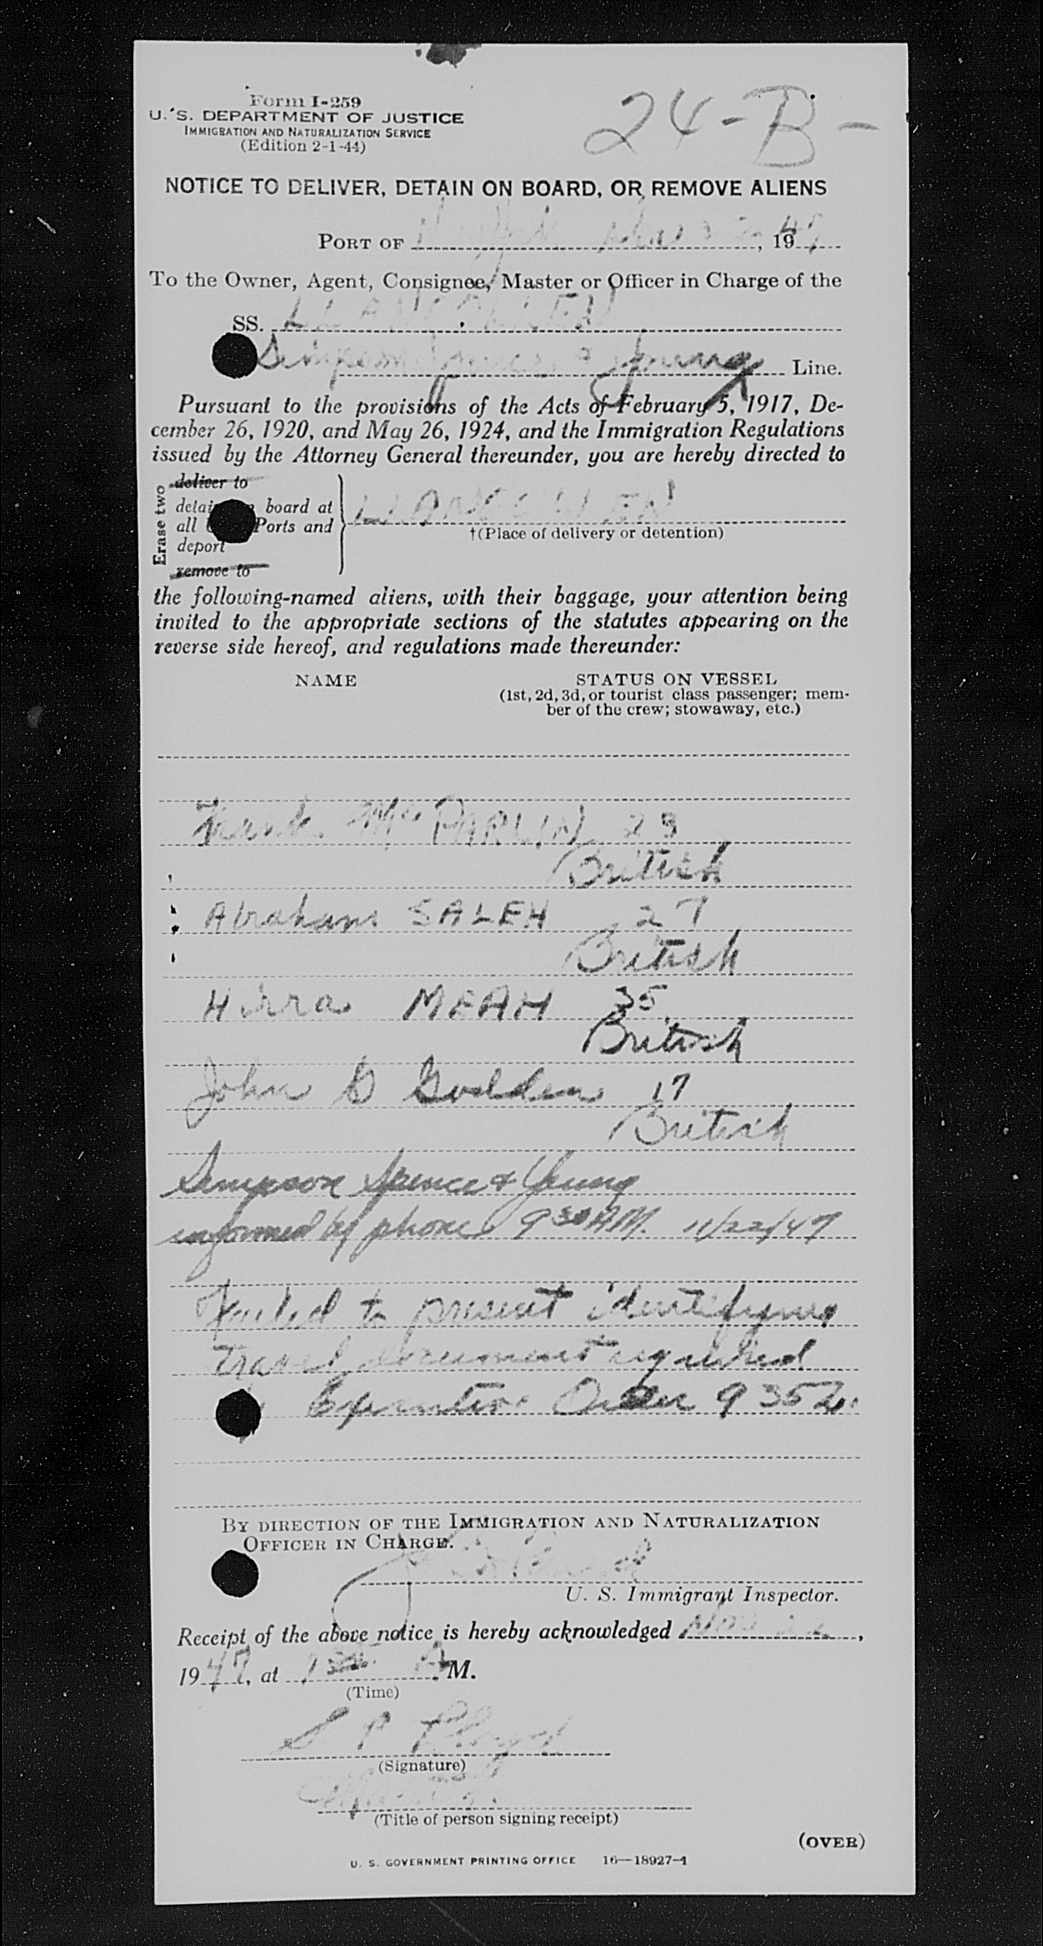 Form I-259
U. S. DEPARTMENT OF JUSTICE
IMMIGRATION AND NATURALIZATION SERVICE
(Edition 2-1-44)
24-B-
NOTICE TO DELIVER, DETAIN ON BOARD, OR REMOVE ALIENS
PORT OF , 1947
To the Owner, Agent, Consignee, Master or Officer in Charge of the
SS.
Simpson Spence & Young Line.
Pursuant to the provisions of the Acts of February 5, 1917, De-
cember 26, 1920, and May 26, 1924, and the Immigration Regulations
issued by the Attorney General thereunder, you are hereby directed to
Erase two
deliver to
board at
all Ports and
deport
remove to
†(Place of delivery or detention)
the following-named aliens, with their baggage, your attention being
invited to the appropriate sections of the statutes appearing on the
reverse side hereof, and regulations made thereunder:
NAME STATUS ON VESSEL
(1st, 2d, 3d, or tourist class passenger; mem-
ber of the crew; stowaway, etc.)
Frank McPARLIN 23
British
Abraham SALEH 27
British
Hirra MEAH 35
British
John G Godden 17
British
Simpson Spence & Young
informed by phone 9 30 AM. 11/22/47
Failed to present identifying
travel document required
Executive Order 9352.
BY DIRECTION OF THE IMMIGRATION AND NATURALIZATION
OFFICER IN CHARGE.
U. S. Immigrant Inspector.
Receipt of the above notice is hereby acknowledged Nov 22,
1947, at A M.
(Time)
S P Lloyd
(Signature)
(Title of person signing receipt)
(OVER)
U. S. GOVERNMENT PRINTING OFFICE 16—18927-1